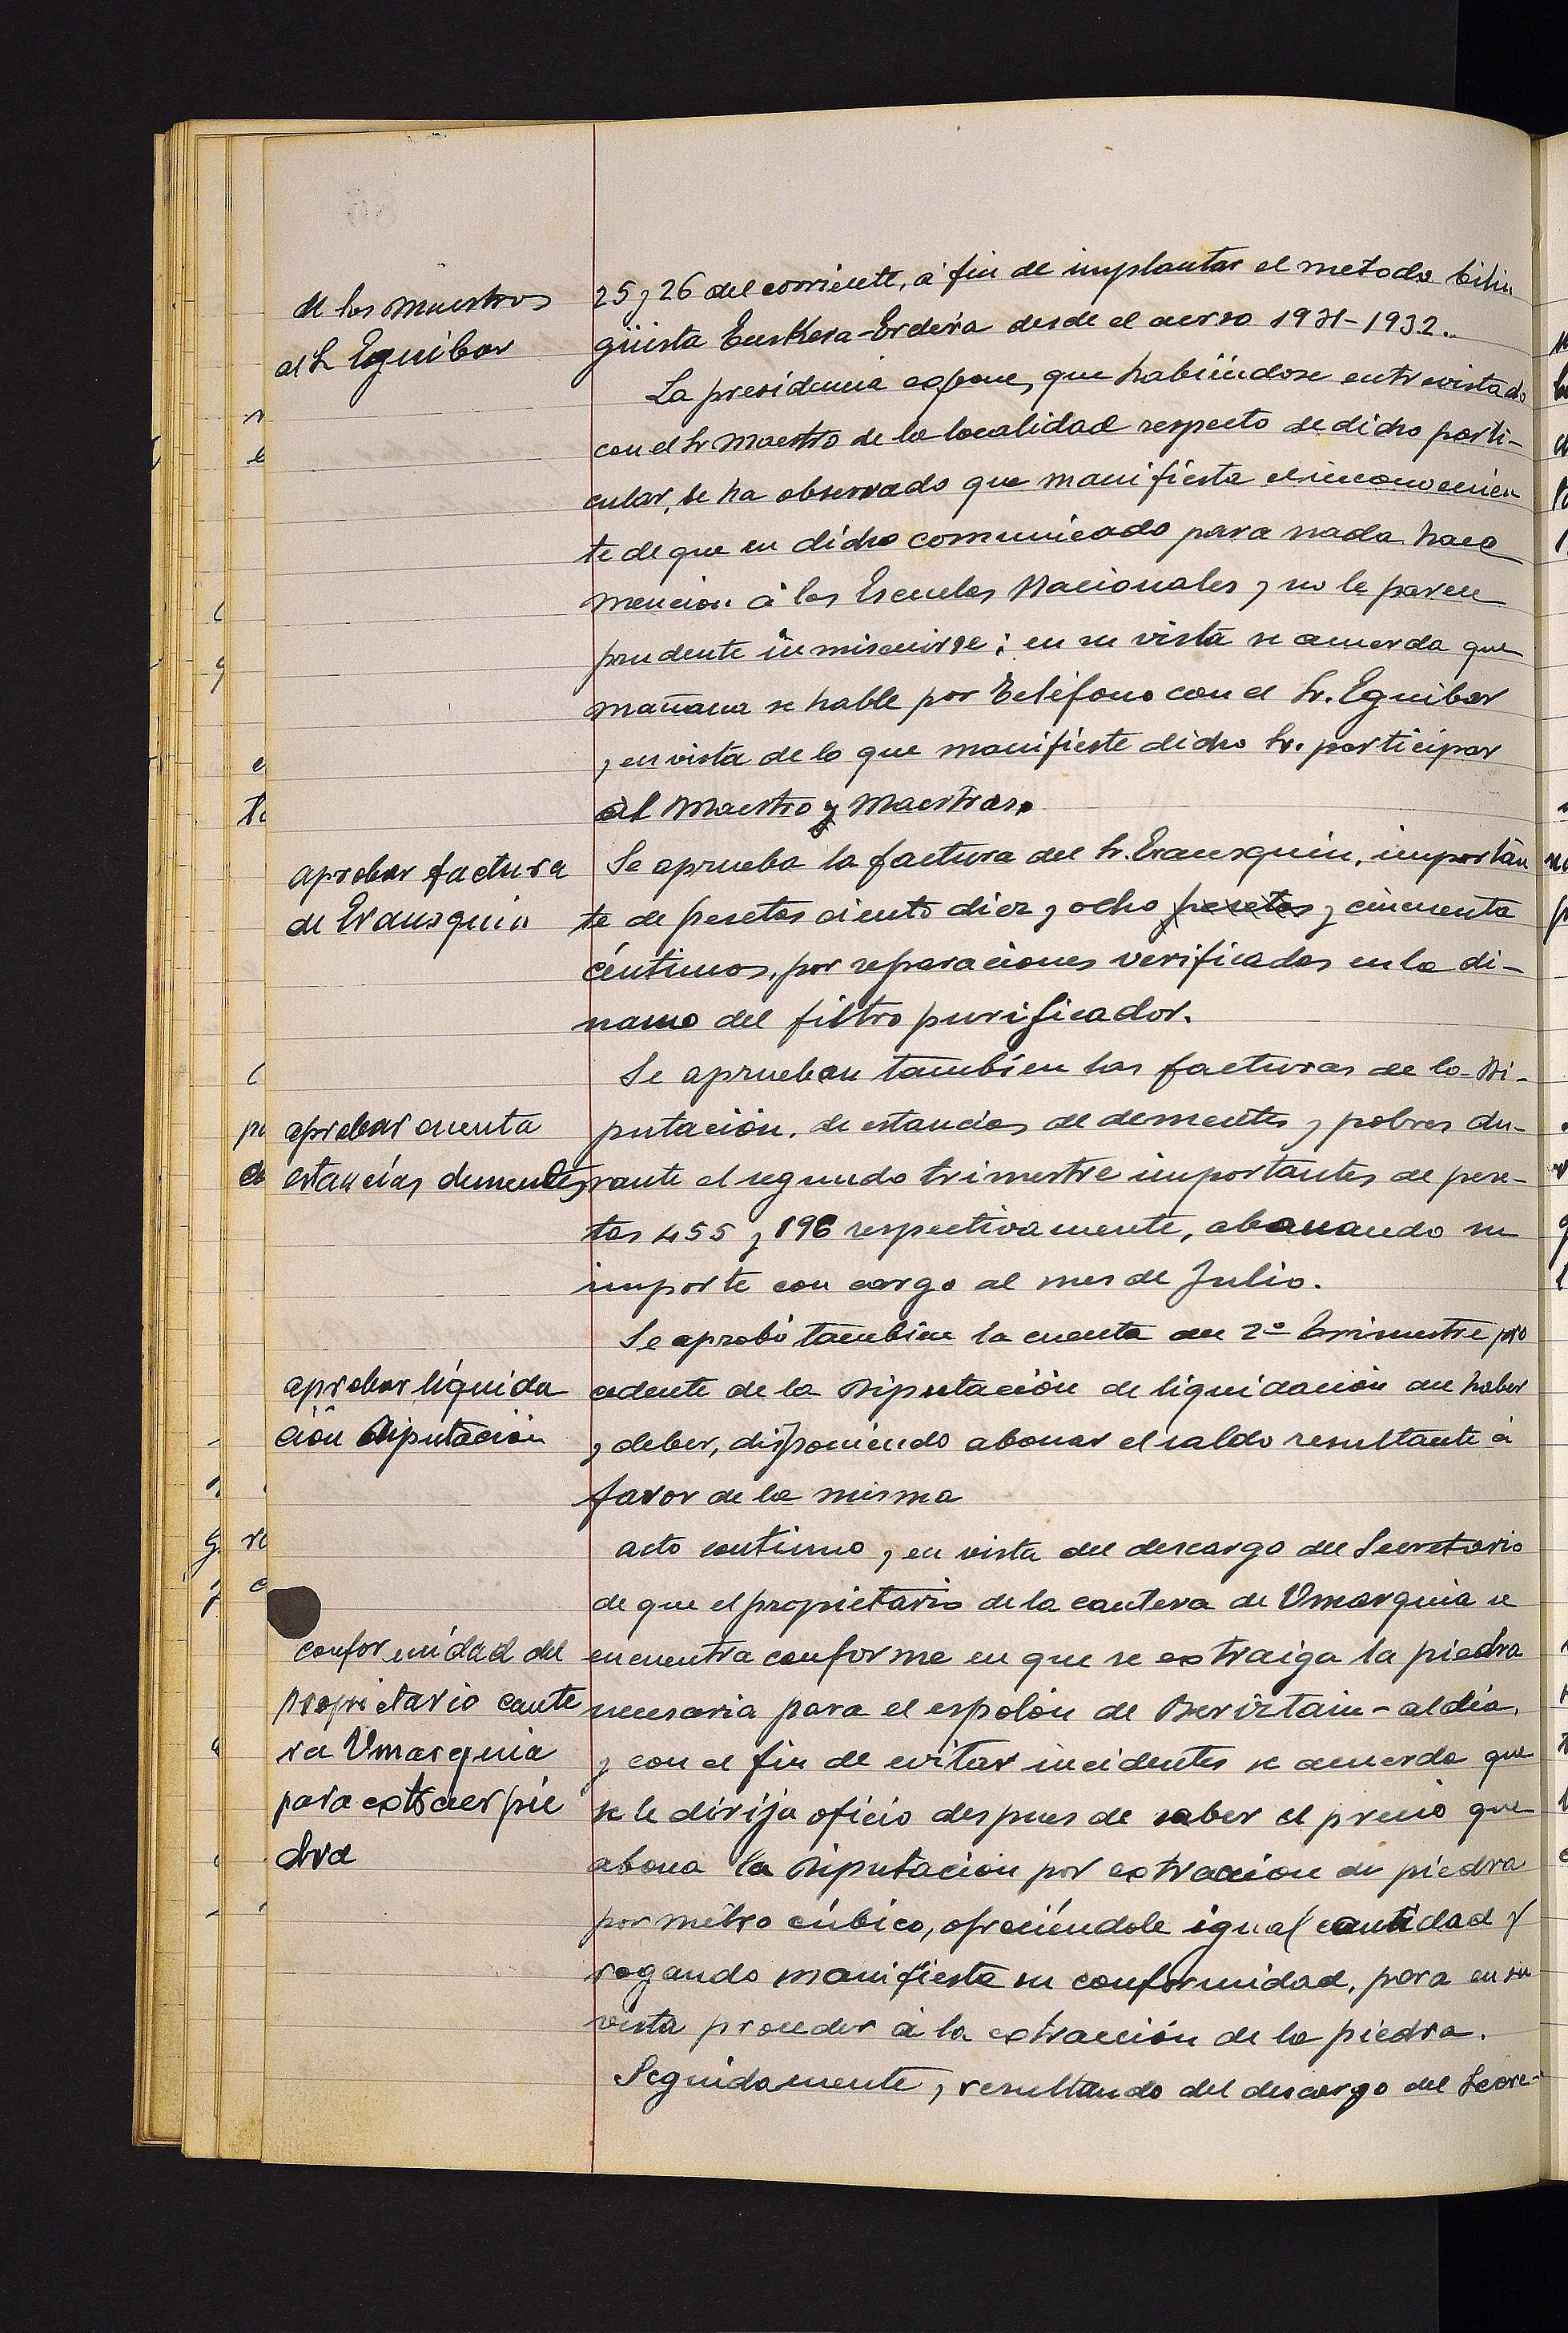 de los maestros
al Sr Eguibar
25 y 26 del corriente, á fin de implantar el metodo bilin
güista Euskera-Erdera desde el curso 1931-1932.
La presidencia expone, que habiéndose entrevistado
con el Sr Maestro de la localidad respecto de dicho parti-
cular, se ha observado que manifiesta el inconvenien
te de que en dicho comunicado para nada hace
mención á las Escuelas Nacionales y no le parece
prudente inmiscuirse; en su vista se acuerda que
mañana se hable por Teléfono con el Sr. Eguibar
y en vista de lo que manifieste dicho Sr. participar
al Maestro y Maestras.
aprobar factura
de Erausquin
Se aprueba la factura del Sr. Erausquin, importan
te de pesetas ciento diez y ocho pesetas y cincuenta
céntimos, por reparaciones verificadas en la di-
namo del filtro purificador.
Se aprueban también las facturas de la Di-
aprobar cuenta
estancias dementes
putación, de estancias de dementes y pobres du-
rante el segundo trimestre importantes de pese-
tas 455 y 196 respectivamente, abonando su
importe con cargo al mes de Julio.
Se aprobó también la cuenta del 2º trimestre pro
aprobar liquida
ción Diputación
cedente de la Diputación de liquidación del haber
y deber, disponiendo abonar el saldo resultante á
favor de la misma
acto continuo, en vista del descargo del Secretario
de que el propietario de la cantera de Umarquia se
conformidad del
propietario cante
ra Umarquia
para extraer pie
dra
encuentra conforme en que se extraiga la piedra
necesaria para el espolón de Beriztain-aldia,
y con el fin de evitar incidentes se acuerda que
se le dirija oficio despues de saber el precio que
abona la Diputación por extracción de piedra
por metro cúbico, ofreciéndole igual cantidad y
rogando manifieste su conformidad, para en su
vista proceder á la extracción de la piedra.
Seguidamente, resultando del descargo del Secre-